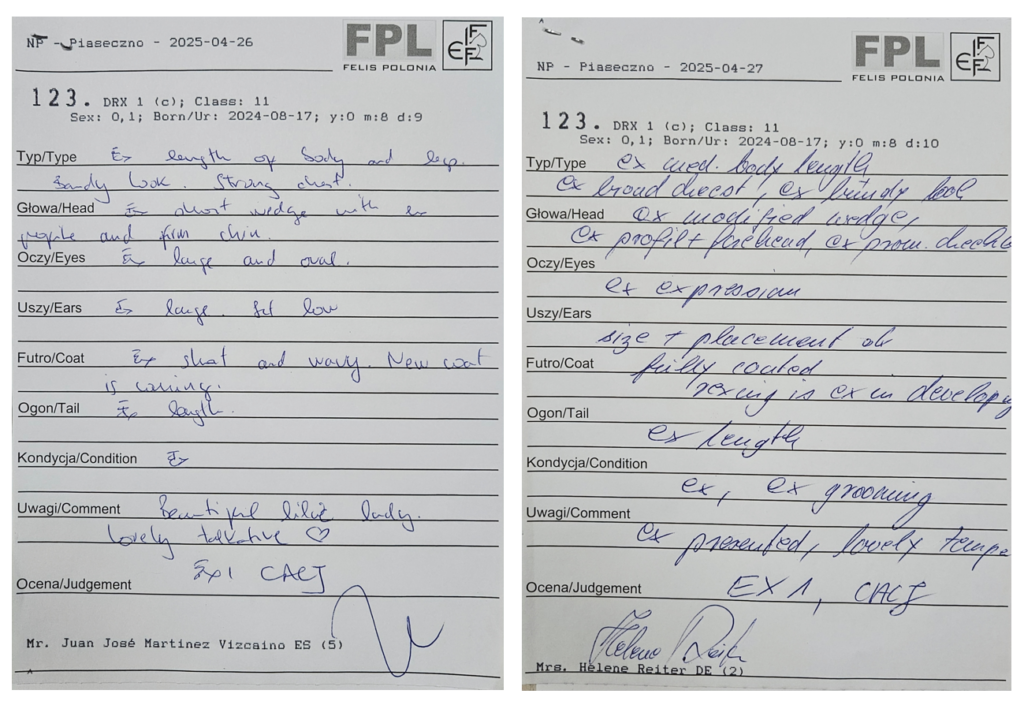 NP - Piaseczno - 2025-04-26
FPL
FELIS POLONIA
FIFE
123. DRX 1 (c); Class: 11
Sex: 0,1; Born/Ur: 2024-08-17; y:0 m:8 d:9
Typ/Type Ex length of body and legs.
look. Strong chest.
Głowa/Head Ex short wedge with ex
profile and firm chin.
Oczy/Eyes Ex large and oval.
Uszy/Ears Ex large. Set low
Futro/Coat Ex short and wavy. New coat
is coming.
Ogon/Tail Ex length.
Kondycja/Condition Ex
Uwagi/Comment Beautiful lilac lady.
lovely talkative ♡
Ocena/Judgement Ex1 CACJ
Mr. Juan José Martinez Vizcaino ES (5)
NP - Piaseczno - 2025-04-27
FPL
FELIS POLONIA
FIFE
123. DRX 1 (c); Class: 11
Sex: 0,1; Born/Ur: 2024-08-17; y:0 m:8 d:10
Typ/Type ex med. body length
ex broad chest, ex
Głowa/Head ex modified wedge,
ex profil + forehead, ex prom.
Oczy/Eyes
ex expression
Uszy/Ears
size + placement ok
Futro/Coat fully coated
rexing is ex in develop
Ogon/Tail
ex length
Kondycja/Condition
ex, ex grooming
Uwagi/Comment
ex presented, lovely tempe
Ocena/Judgement EX 1, CACJ
Helene Reiter
Mrs. Hélene Reiter DE (2)